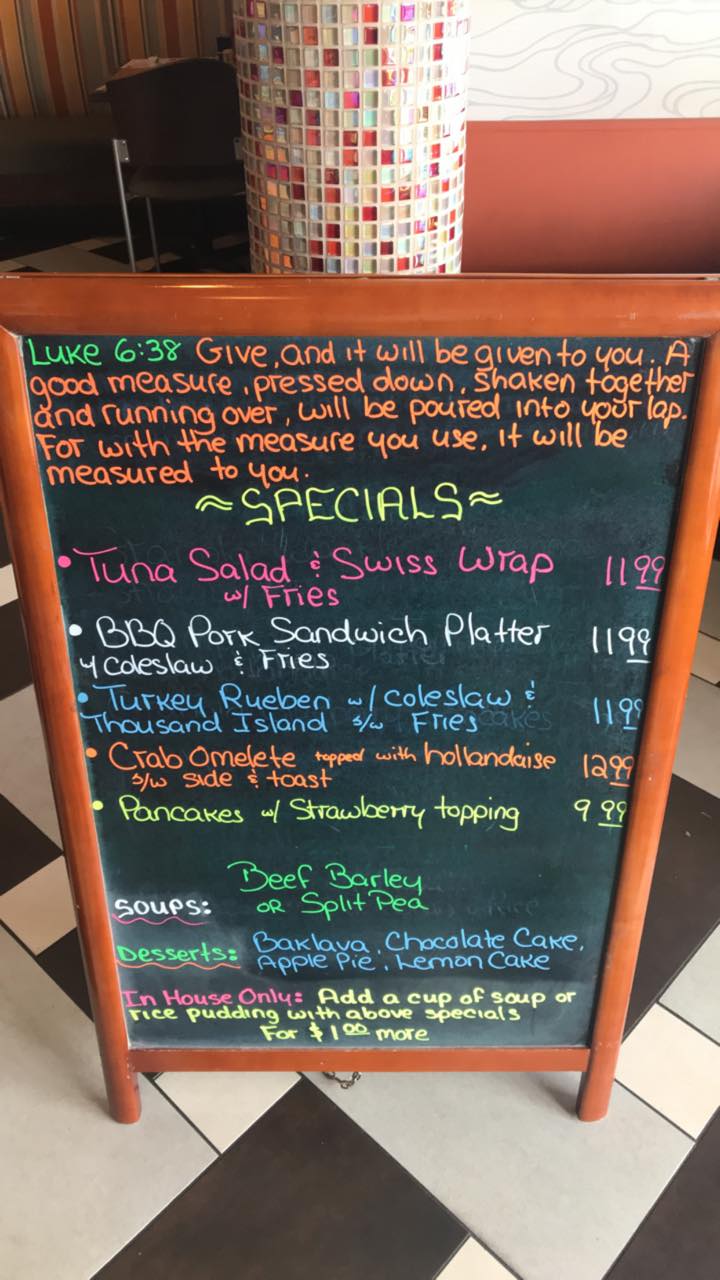 Luke 6:38 Give, and it will be given to you. A
good measure, pressed down, shaken together
and running over, will be poured into your lap.
For with the measure you use, it will be
measured to you.
≈SPECIALS≈
• Tuna Salad & Swiss Wrap 11 99
w/ Fries
• BBQ Pork Sandwich Platter 11 99
w/ Coleslaw & Fries
• Turkey Rueben w/ coleslaw & 11 99
Thousand Island s/w Fries
• Crab Omelete topped with hollandaise 12 99
s/w side & toast
• Pancakes w/ Strawberry topping 9 99
Beef Barley
Soups: or Split Pea
Desserts: Baklava, Chocolate Cake,
Apple Pie, Lemon Cake
In House Only: Add a cup of soup or
rice pudding with above specials
For $1 00 more